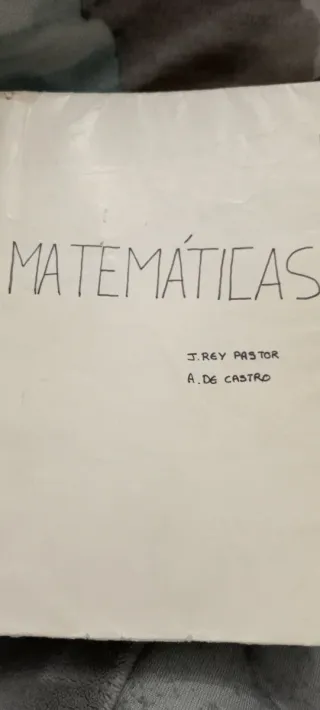 MATEMÁTICAS
J. REY PASTOR
A. DE CASTRO